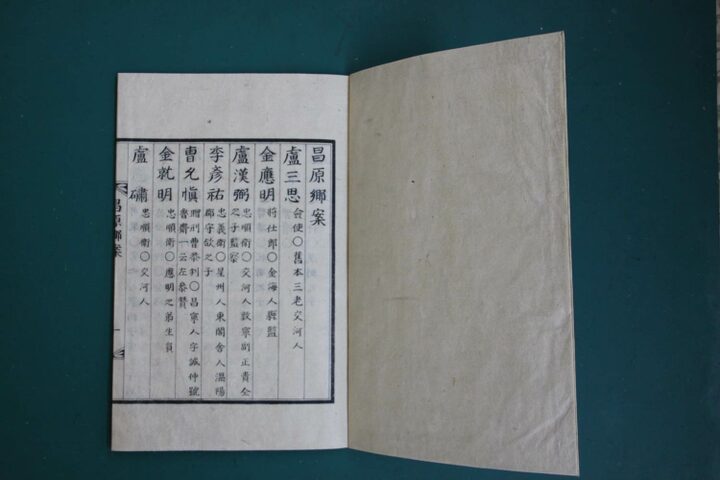 昌原鄉案
盧三思 僉使○舊本三老交河人
金應明 將仕郎○金海人縣監
盧漢弼 忠順衛○交河人敦寧副正貴全
之子監察
李彥祐 忠義衛○星州人東閣舍人混陽
郡守欲之子
曹允愼 贈刑曹參判○昌寧人字誠仲號
魯齋一云左參贊
金就明 忠順衛○應明之弟生員
盧磺 忠順衛○交河人
昌原鄉案
一